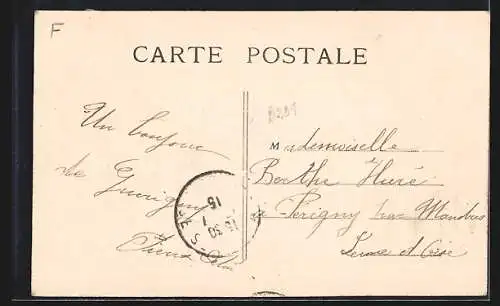 F
CARTE POSTALE
Un bonjour
de Guerigny
Mademoiselle
Berthe Huré
à Périgny par Mandres
Seine et Oise
15
7
15 30
E S